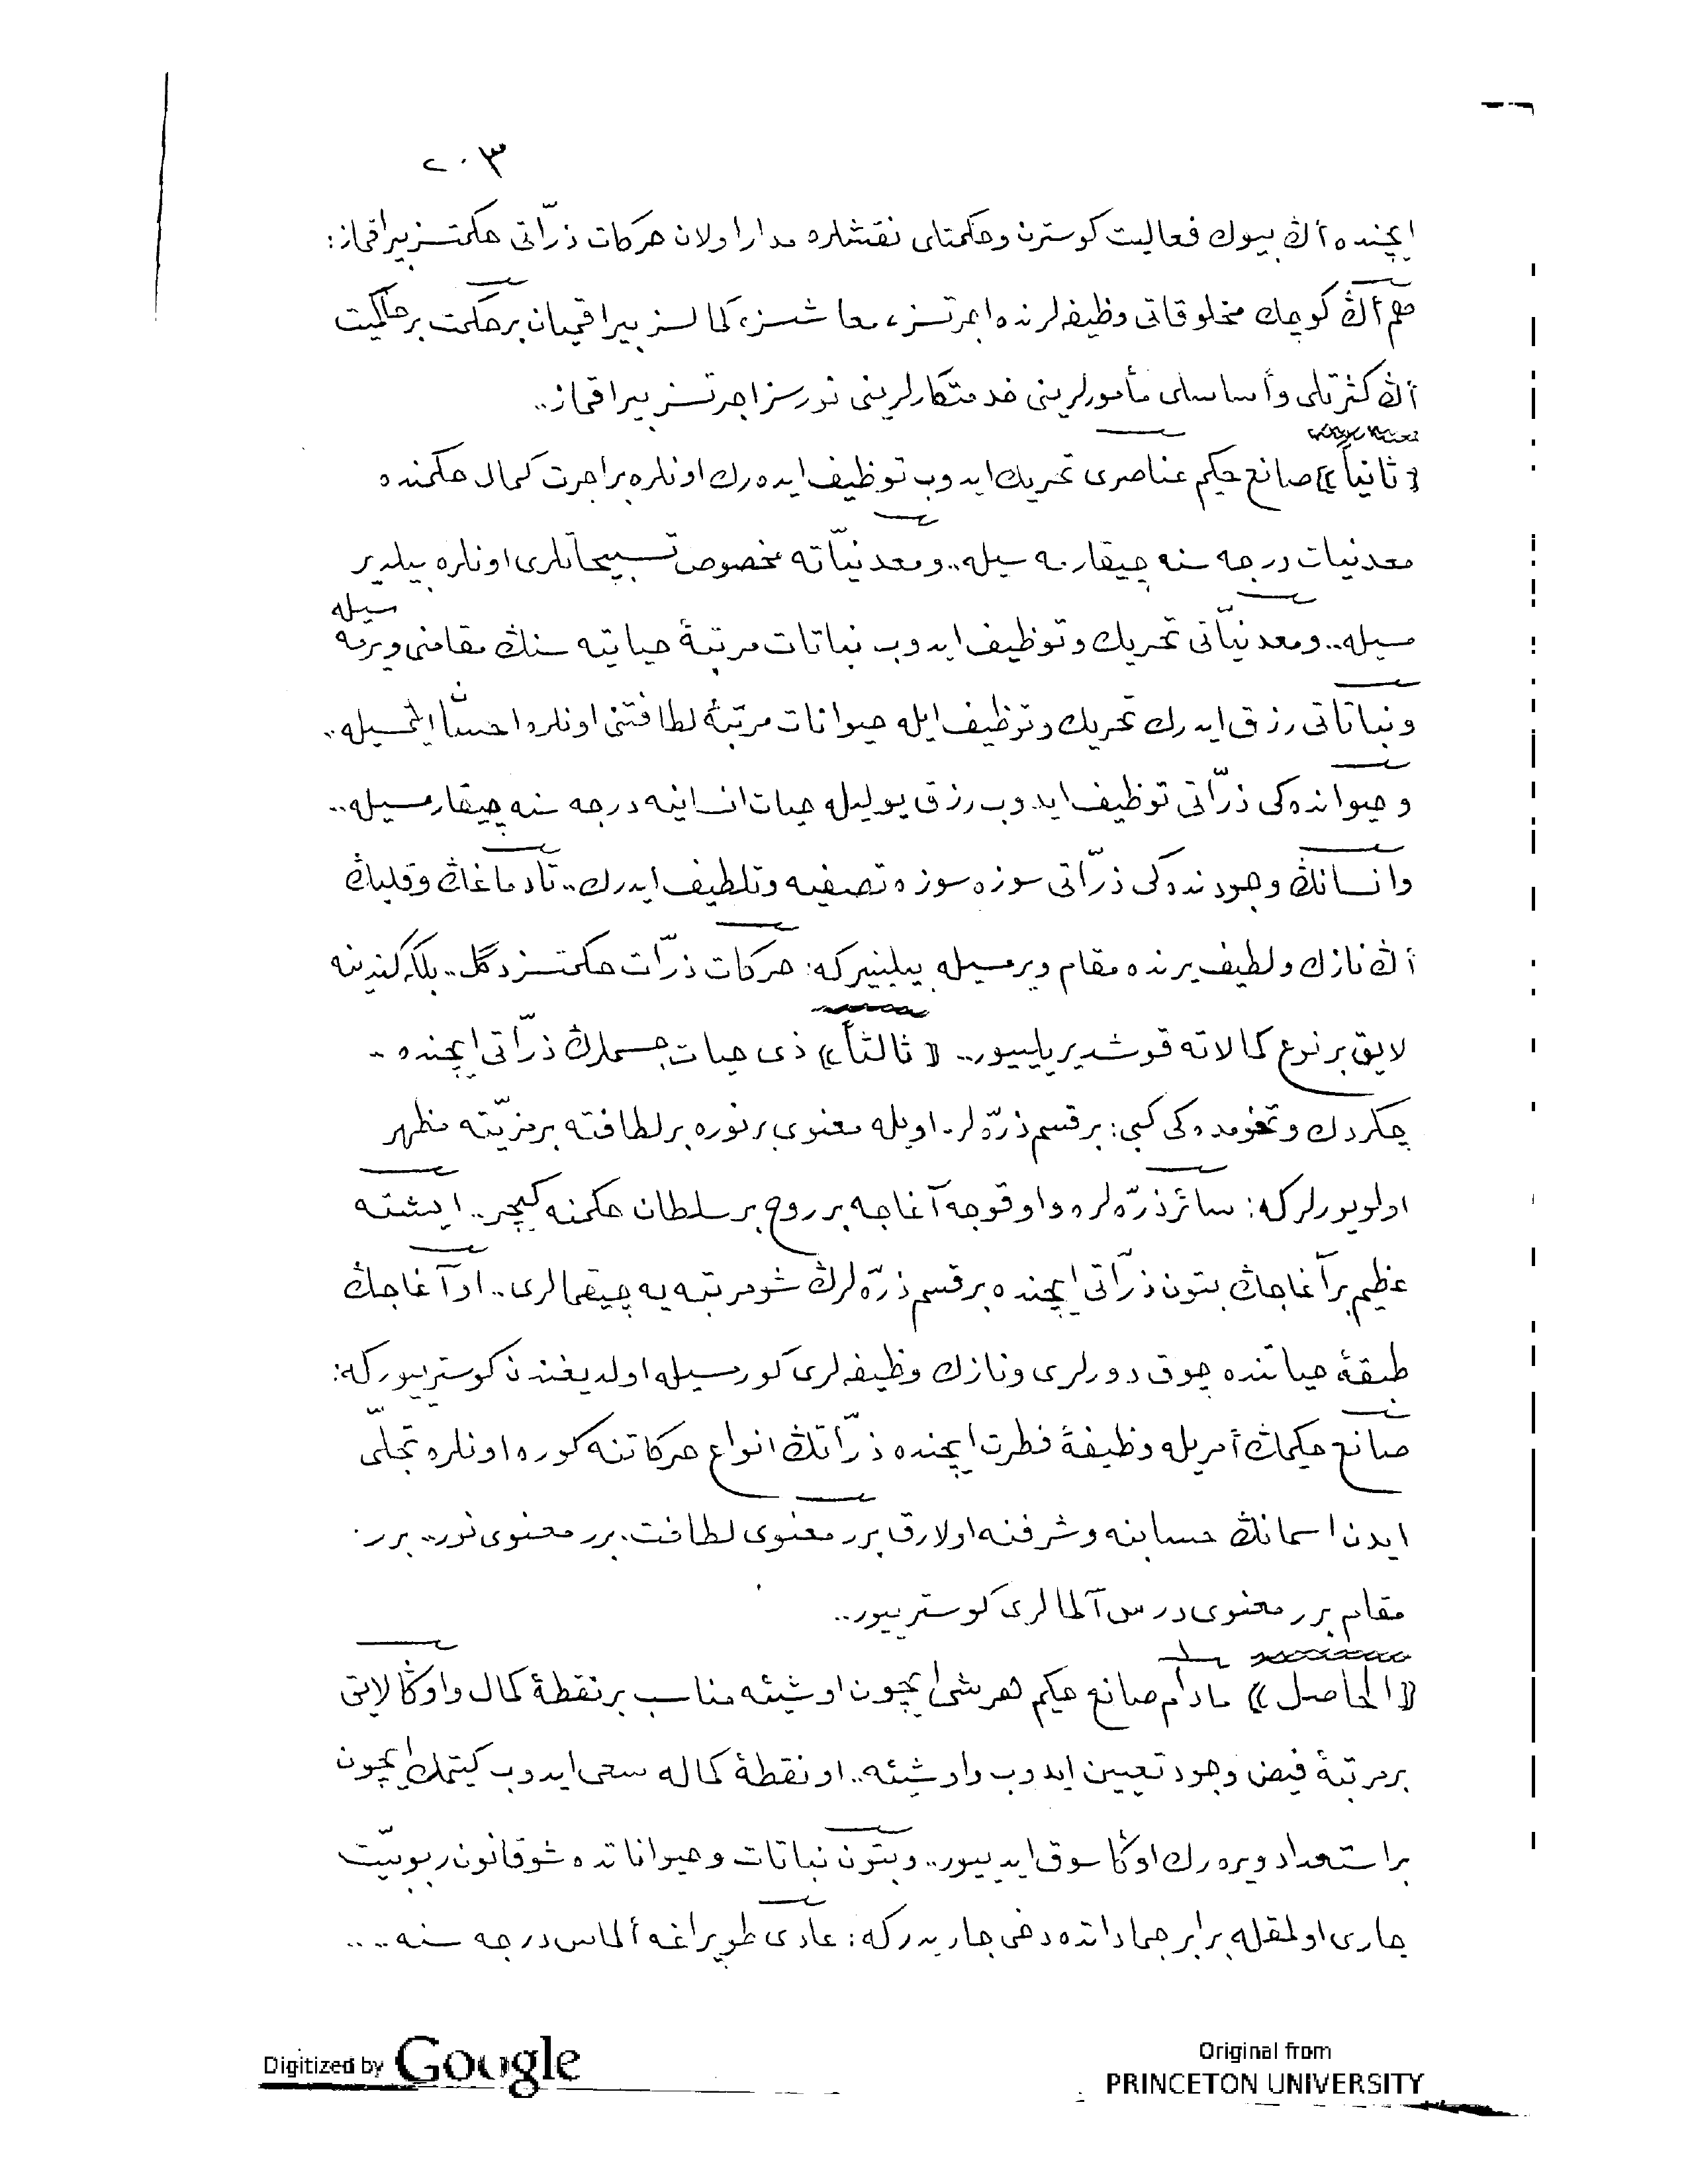 ٢٠٣
ایچنده أڭ بیوك فعالیت كوسترن وحكمتلی نقشلره مدار اولان حركات ذرّاتی حكمتسز بیراقماز:
هم أڭ كوچك مخلوقاتی وظیفه‌لرنده اجرتسز، معاشسز، كمالسز بیراقمیان برحكمت برحاكمیت
أڭ كثرتلی وأساسلی مأمورلرینی خدمتكارلرینی نورسز اجرتسز بیراقماز..
﴿ثانیاً﴾ صانع حكیم عناصری تحریك ایدوب توظیف ایده‌رك اونلره براجرت كمال حكمنده
معدنیات درجه سنه چیقارمه سیله.. ومعدنیّاته مخصوص تسبیحاتلری اونلره بیلدیر
مسیله.. ومعدنیّاتی تحریك وتوظیف ایدوب نباتات مرتبهٔ حیاتیه سنڭ مقامنی ویرمه سیله
ونباتاتی رزق ایدرك تحریك وتوظیف ایله حیوانات مرتبهٔ لطافتنی اونلره احسان ایتمسیله..
وحیوانده‌كی ذرّاتی توظیف ایدوب رزق یولیله حیات انسانیه درجه سنه چیقارمسیله..
وانسانڭ وجودنده‌كی ذرّاتی سوزه سوزه تصفیه وتلطیف ایدرك.. تا دماغڭ وقلبڭ
أڭ نازك ولطیف یرنده مقام ویرمسیله بیلینیركه: حركات ذرّات حكمتسز دگل.. بلكه كندینه
لایق برنوع كمالاته قوشدیریلییور.. ﴿ثالثاً﴾ ذی حیات جسملرڭ ذرّاتی ایچنده..
چكردك وتخومده‌كی كبی: برقسم ذرّه‌لر. اویله معنوی برنوره برلطافته برمزیّته مظهر
اولویورلركه: سائر ذرّه‌لره واوقوجه آغاجه برروح برسلطان حكمنه كیچر.. ایشته
عظیم برآغاجڭ بتون ذرّاتی ایچنده برقسم ذرّه‌لرڭ شومرتبه یه چیقمالری.. اوآغاجڭ
طبقهٔ حیاتنده چوق دورلری ونازك وظیفه‌لری كورمسیله اولدیغندن كوستریبوركه:
صانع حكیمڭ أمریله وظیفهٔ فطرت ایچنده ذرّاتڭ انواع حركاتنه كوره اونلره تجلّی
ایدن اسمانڭ حسابنه وشرفنه اولارق برر معنوی لطافت. برر معنوی نور.. برر
مقام برر معنوی درس آلمالری كوستریبور..
﴿الحاصل﴾ مادام صانع حكیم هرشی ایچون اوشیئه مناسب برنقطهٔ كمال واوڭا لایق
برمرتبهٔ فیض وجود تعیین ایدوب واوشیئه.. اونقطهٔ كماله سعی ایدوب كیتمك ایچون
براستعداد ویره‌رك اوڭا سوق ایدییور.. وبتون نباتات وحیواناتده شوقانون ربوبیّت
جاری اولمقله برابر جماداتده دخی جاریدركه: عادّی طوپراغه ألماس درجه سنه....
Digitized by Google
Original from
PRINCETON UNIVERSITY